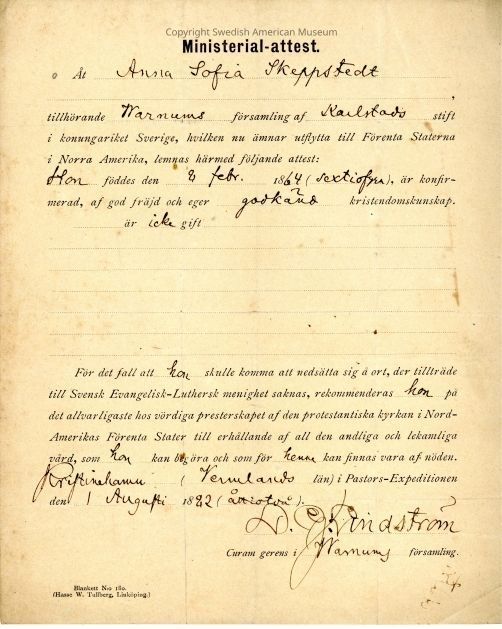 Copyright Swedish American Museum
Ministerial-attest.
Åt Anna Sofia Skeppstedt
,
tillhörande Warnums församling af Karlstads stift
i konungariket Sverige, hvilken nu ämnar utflytta till Förenta Staterna
i Norra Amerika, lemnas härmed följande attest:
Hon föddes den 8 febr. 1864 (sextiofyra), är konfir-
merad, af god fräjd och eger godkänd kristendomskunskap.
är icke gift
För det fall att hon skulle komma att nedsätta sig å ort, der tillträde
till Svensk Evangelisk-Luthersk menighet saknas, rekommenderas hon på
det allvarligaste hos vördiga presterskapet af den protestantiska kyrkan i Nord-
Amerikas Förenta Stater till erhållande af all den andliga och lekamliga
vård, som hon kan begära och som för henne kan finnas vara af nöden.
Kristinehamn (Vermlands län) i Pastors-Expeditionen
den 1 Augusti 1882 (åttiotvå).
Lindström
Curam gerens i Warnums församling.
Blankett N:o 180.
(Hasse W. Tullberg, Linköping.)